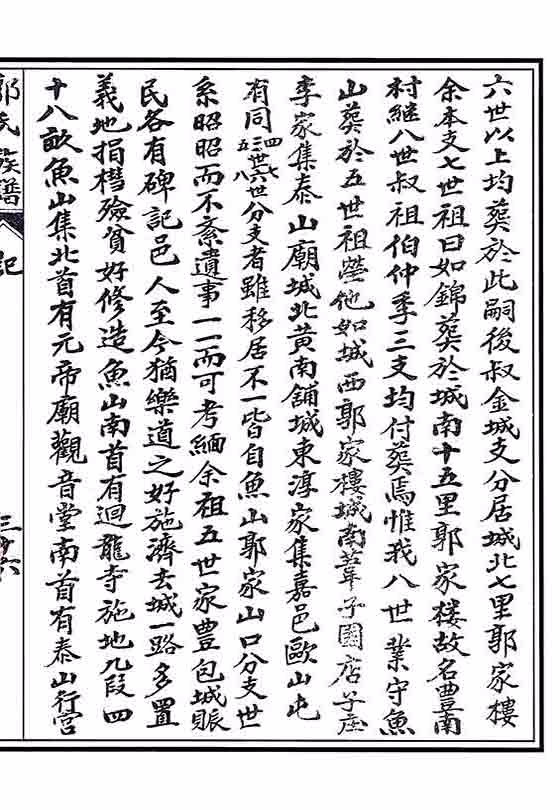 六世以上均葬於此嗣後叔金城支分居城北七里郭家樓
余本支七世祖曰如錦葬於城南十五里郭家楼故名豊南
村継八世叔祖伯仲季三支均付葬焉惟我八世業守魚
山葬於五世祖塋他如城西郭家樓城南葦子園店子庄
季家集泰山廟城北黄南舖城東淳家集嘉邑歐山屯
有同三四五世六七八世分支者雖移居不一皆自魚山郭家山口分支世
系昭昭而不紊遺事一一而可考緬余祖五世家豊包城賑
民各有碑記邑人至今猶樂道之好施濟去城一路多置
義地捐槥殮貧好修造魚山南首有迴龍寺施地九段四
十八畝魚山集北首有元帝廟觀音堂南首有泰山行宫
郭氏族譜 記 三十六